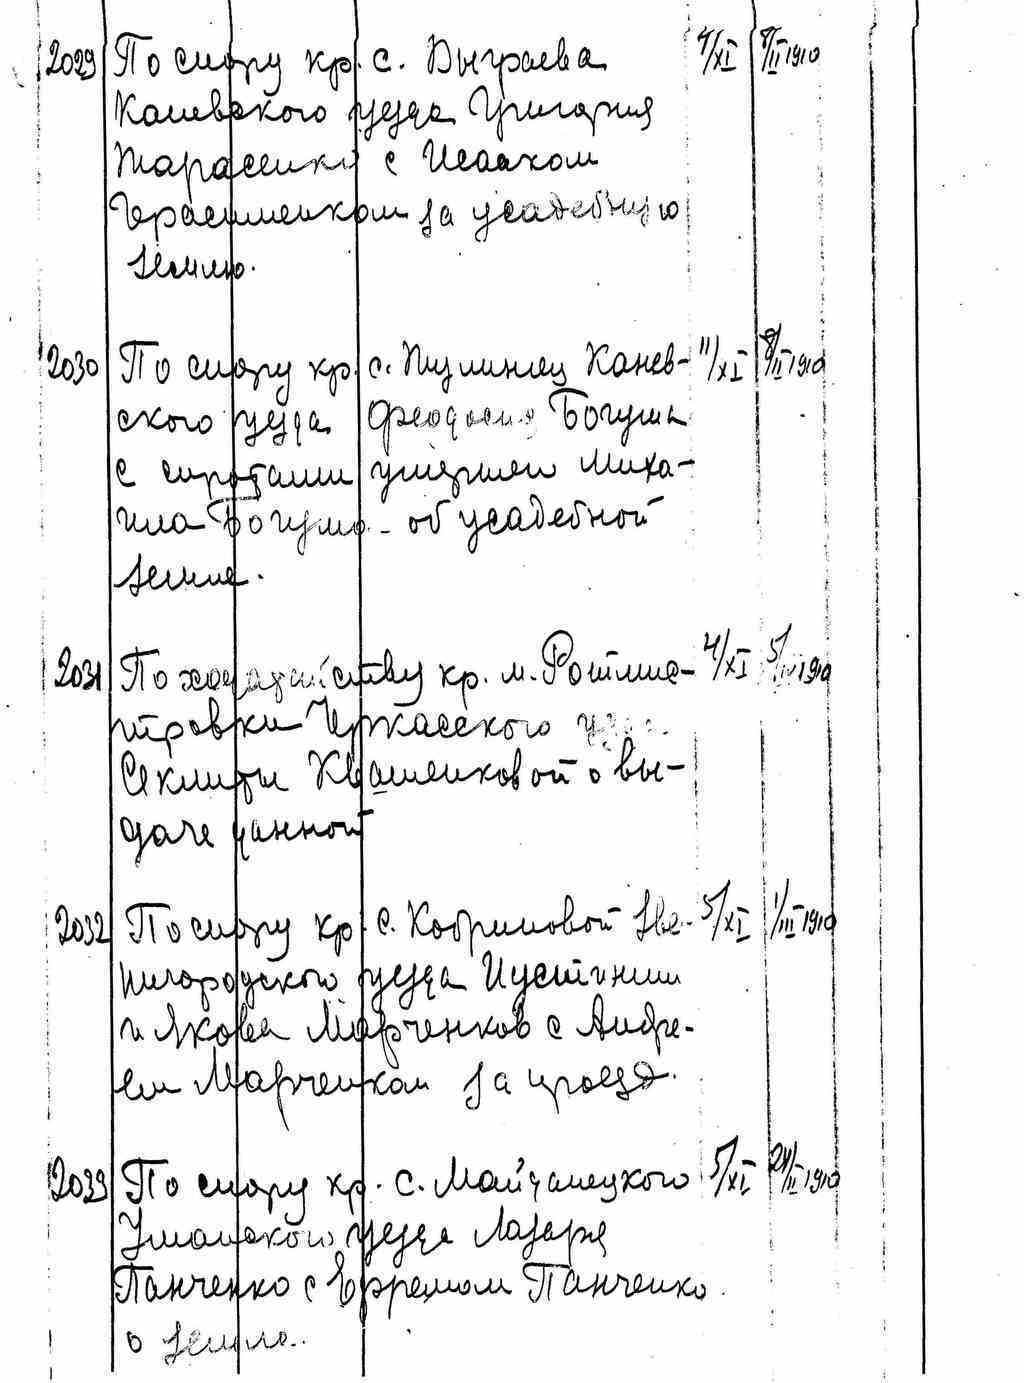 2029 По спору кр. с. Выграева 4/XI 8/II 1910
Каневского уезда Григория
Тарасенко с Исааком
Герасименком за усадебную
землю.
2030 По спору кр. с. Пилипец Канев- 11/XI 8/II 1910
ского уезда Феодосия Богуша
с сиротами умершего Миха-
ила Богуша - об усадебной
земле.
2031 По ходатайству кр. м. Ротмис- 4/XI 5/ 1910
тровки Черкасского уезда
Секлиты Квашенковой о вы-
даче данной
2032 По спору кр. с. Кобриновой Зве- 5/XI 1/III 1910
нигородского уезда Иустинии
и Якова Марченков с Андре-
ем Марченком за проезд.
2033 По спору кр. с. Майданецкого 5/XI 24/II 1910
Уманского уезда Лазаря
Панченко с Ефремом Панченко
о земле.